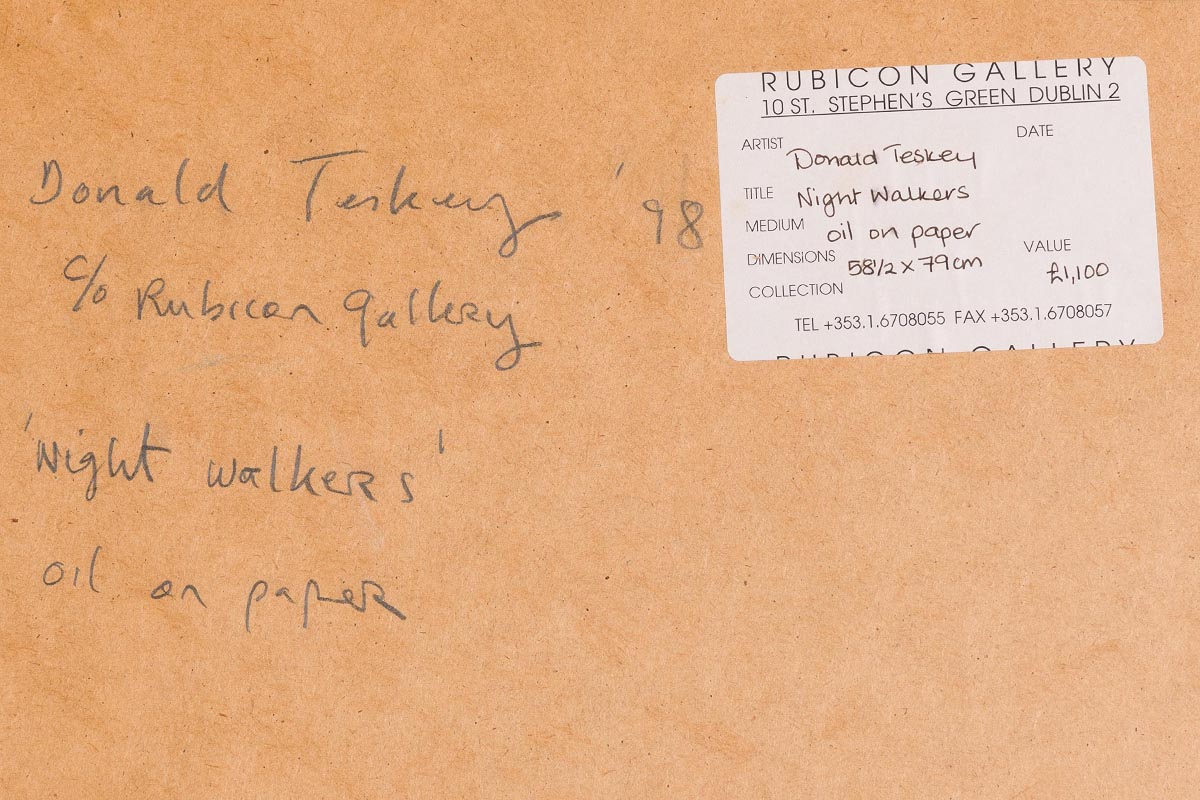 Donald Teskey '98
c/o Rubicon Gallery
'Night Walkers'
oil on paper
RUBICON GALLERY
10 ST. STEPHEN'S GREEN DUBLIN 2
ARTIST Donald Teskey DATE
TITLE Night Walkers
MEDIUM oil on paper
DIMENSIONS 58 1/2 x 79cm VALUE
COLLECTION £1,100
TEL +353.1.6708055 FAX +353.1.6708057
RUBICON GALLERY